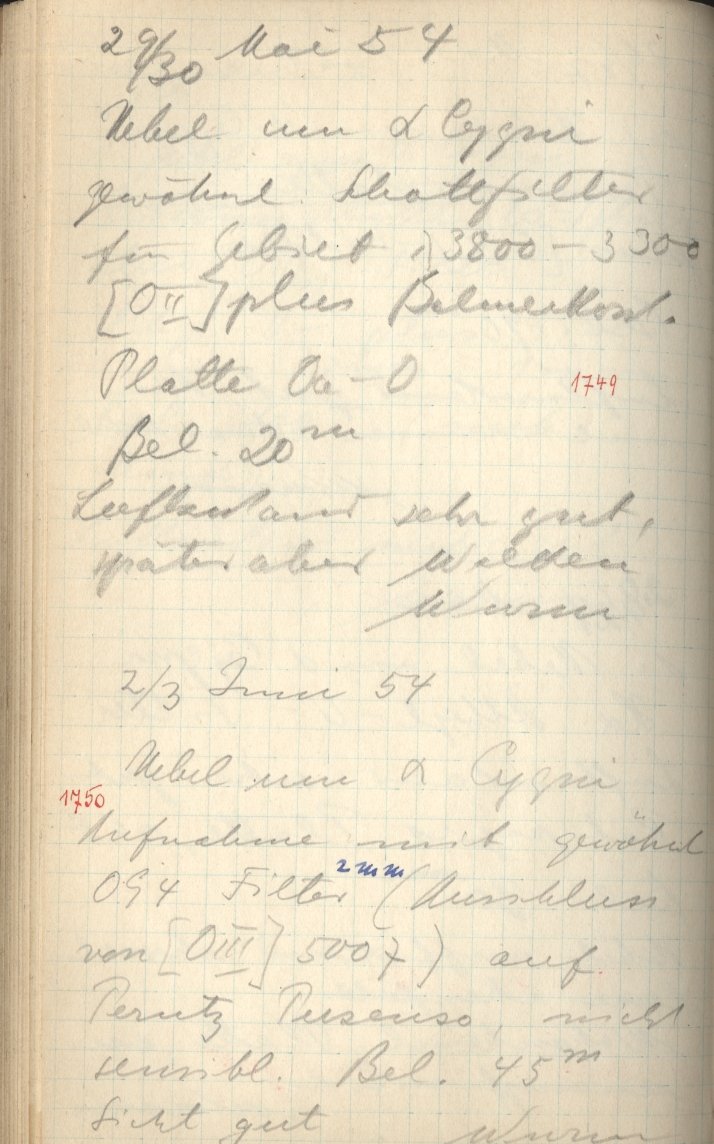 29/30 Mai 54
Nebel um α Cygni
gewöhnl Schottfilter
für Gebiet λ 3800 – 3300
[OII] plus Balmerkont.
Platte Oa – O
1749
Bel. 20m
Luftzustand sehr gut,
später aber Wolken
Wurm
2/3 Juni 54
Nebel um α Cygni
1750
Aufnahme mit gewöhnl
2mm
OG4 Filter (Ausschluss
von [OIII] 5007) auf
Perutz Persenso, nicht
sensibl. Bel. 45m
Sicht gut Wurm